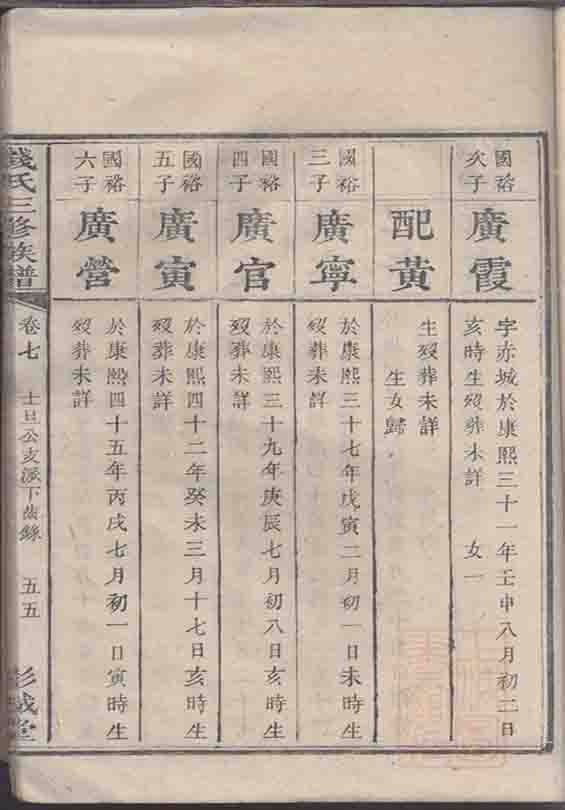 國裕
次子
廣霞
字赤城於康熙三十一年壬申八月初二日
亥時生歿葬未詳 女一
配黃
生歿葬未詳
生女歸
國裕
三子
廣寧
於康熙三十七年戊寅二月初一日未時生
歿葬未詳
國裕
四子
廣官
於康熙三十九年庚辰七月初八日亥時生
歿葬未詳
國裕
五子
廣寅
於康熙四十二年癸未三月十七日亥時生
歿葬未詳
國裕
六子
廣營
於康熙四十五年丙戌七月初一日寅時生
歿葬未詳
錢氏三修族譜
卷七 士旦公支派下齒錄 五五
彭城堂